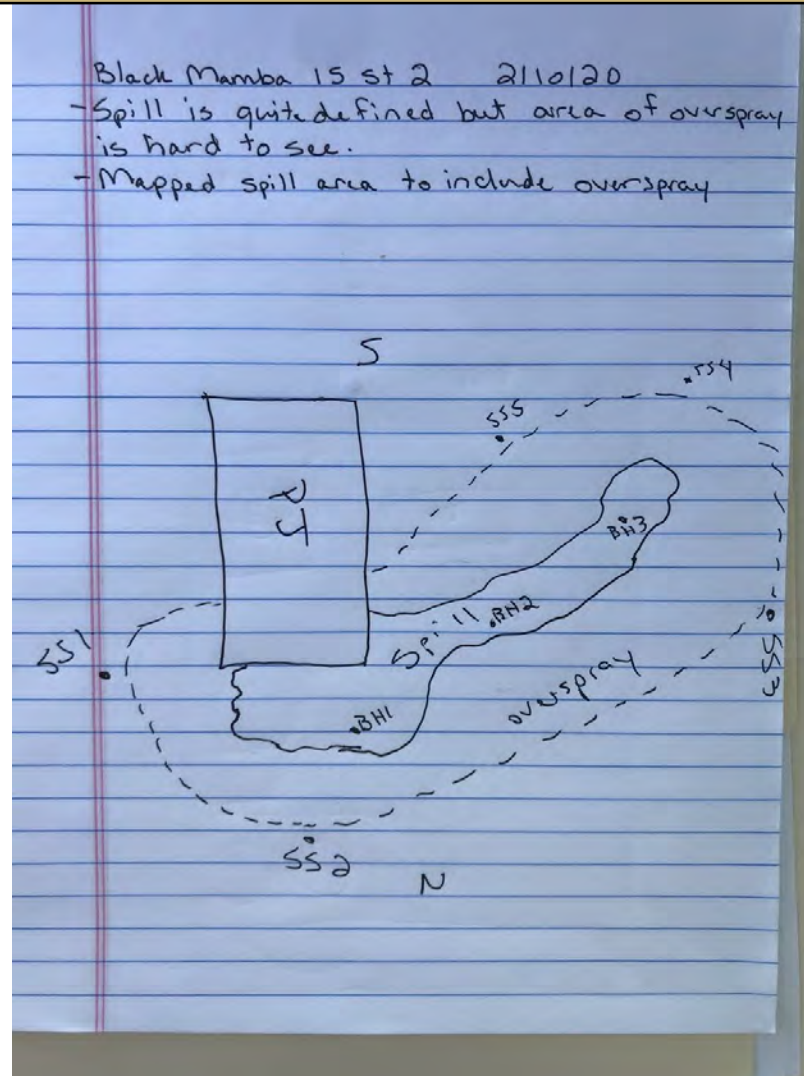 Black Mamba 15 st 2 2/10/20
- Spill is quite defined but area of overspray
is hard to see.
- Mapped spill area to include overspray
S
SS4
SS5
PJ
BH3
Spill .BH2
SS1
SS3
overspray
.BH1
SS2
N